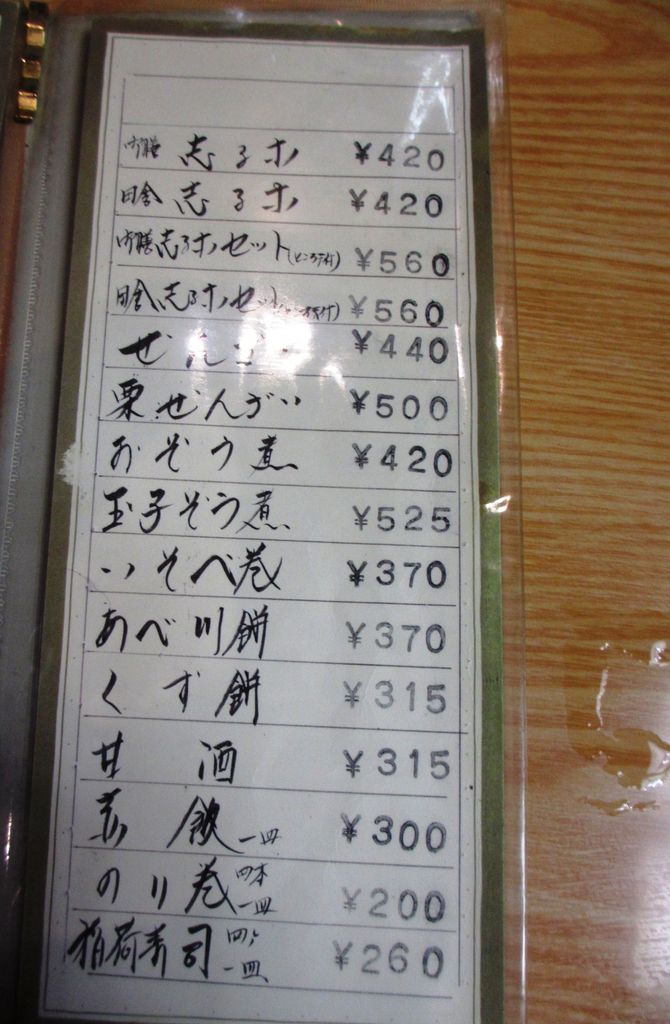 御膳 志るこ ¥420
田舎 志るこ ¥420
御膳志るこセット(ところ天付) ¥560
田舎志るこセット ¥560
ぜんざい ¥440
栗ぜんざい ¥500
おぞう煮 ¥420
玉子ぞう煮 ¥525
いそべ巻 ¥370
あべ川餅 ¥370
くず餅 ¥315
甘酒 ¥315
赤飯 一皿 ¥300
のり巻 四本一皿 ¥200
稲荷寿司 四ヶ一皿 ¥260